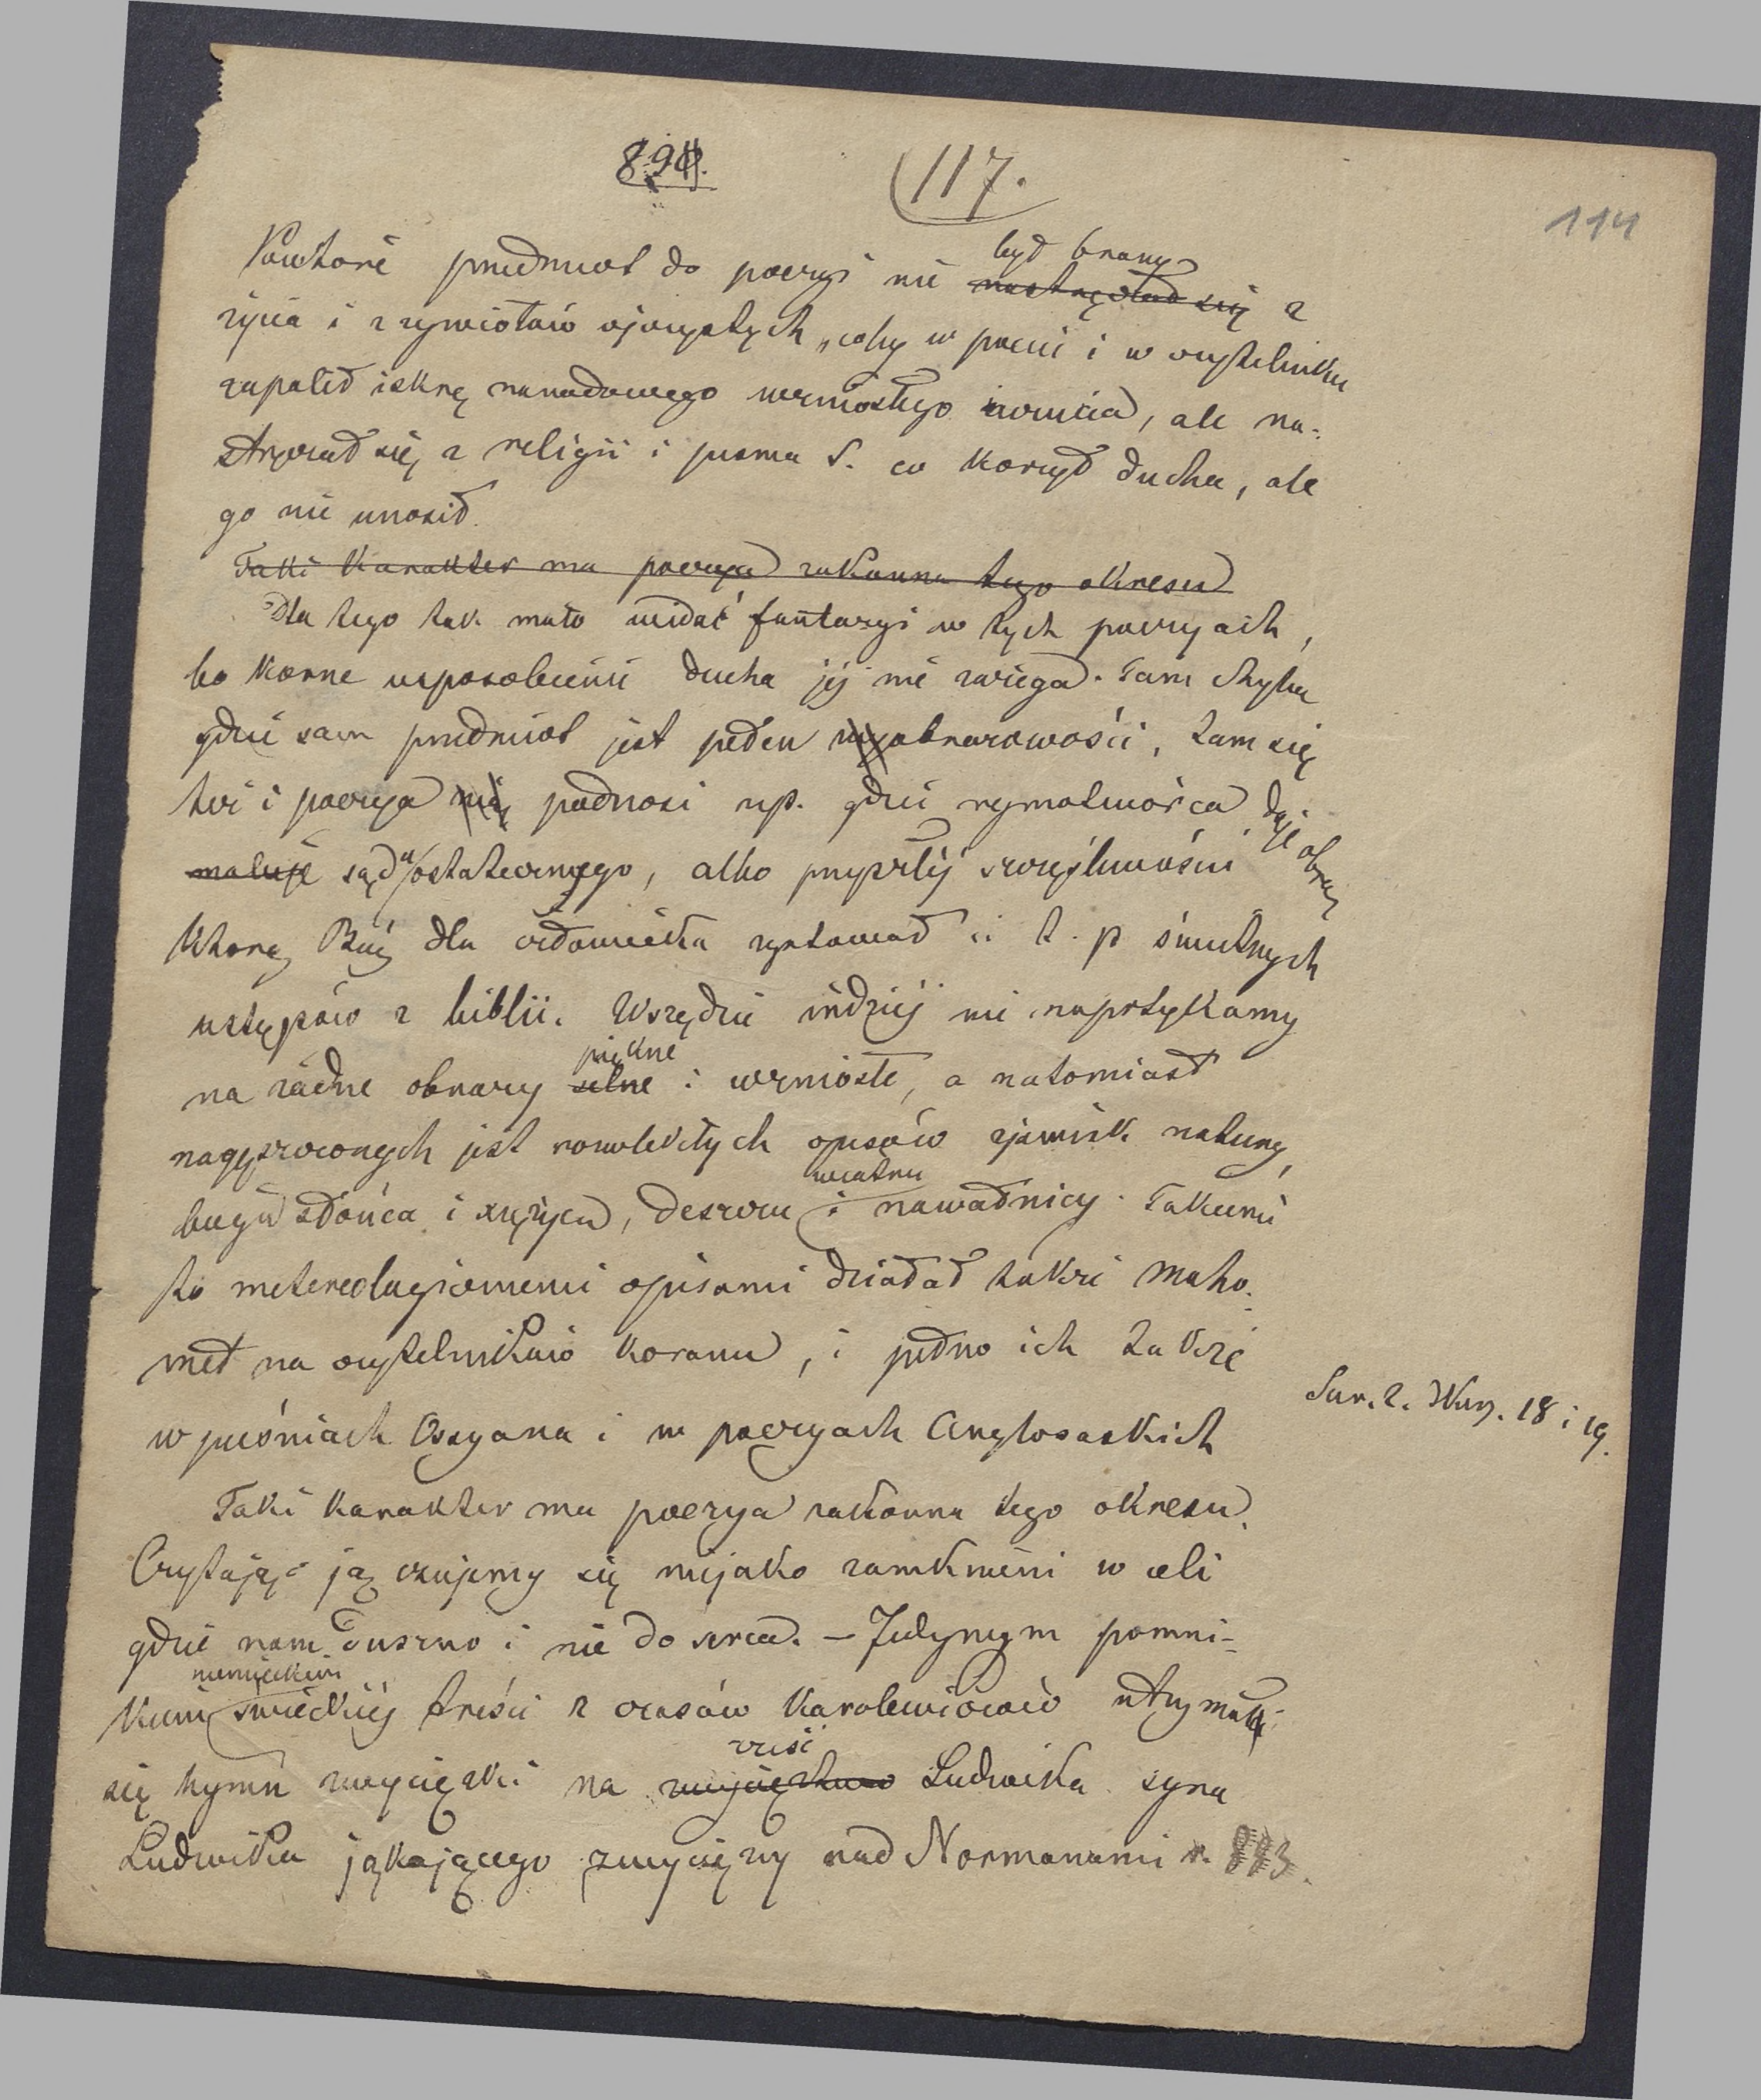 117.
114
Powtóre przedmiot do poezyi nie był brany z
życia i z żywiołów ojczystych, coby w poecie i w czytelniku
zapalił iskrę narodowego wzniosłego uczucia, ale na-
stręczał się z religii i pisma S. co korzył ducha, ale
go nie unosił.
Taki karakter ma poezya zakonna tego okresu
Dla tego tak mało widać fantazyi w tych poezyach,
bo korne usposobienie ducha jej nie zażega. Tam chyba
gdzie sam przedmiot jest pełen obrazowości, tam się
też i poezya podnosi np. gdzie rymotwórca daje obraz
maluje sądu ostatecznego, albo przyszłej szczęśliwości
którą Bóg dla człowieka zgotował i t. p świetnych
ustępów z biblii. Wszędzie indziej nie napotykamy
na żadne obrazy piękne i wzniosłe, a natomiast
rozwlekłych opisów zjawisk natury,
biegu słońca i księżyca, deszczu wiatru i nawałnicy. Takiemi
to metereologicznemi opisami działał także Maho-
met na czytelników koranu, i pełno ich także
w pieśniach Ossyana i w poezyach Anglosaskich
Sur. 2. Wier. 18 i 19.
Taki karakter ma poezya zakonna tego okresu.
Czytając ją czujemy się niejako zamknieni w celi
gdzie nam duszno i nie do serca. — Jedynym pomni-
kiem niemieckim świeckiej treści z czasów Karolewiczów utrzymał
się hymn zwycięzki na cześć Ludwika syna
Ludwika jąkającego zwycięzcy nad Normanami r. 883.